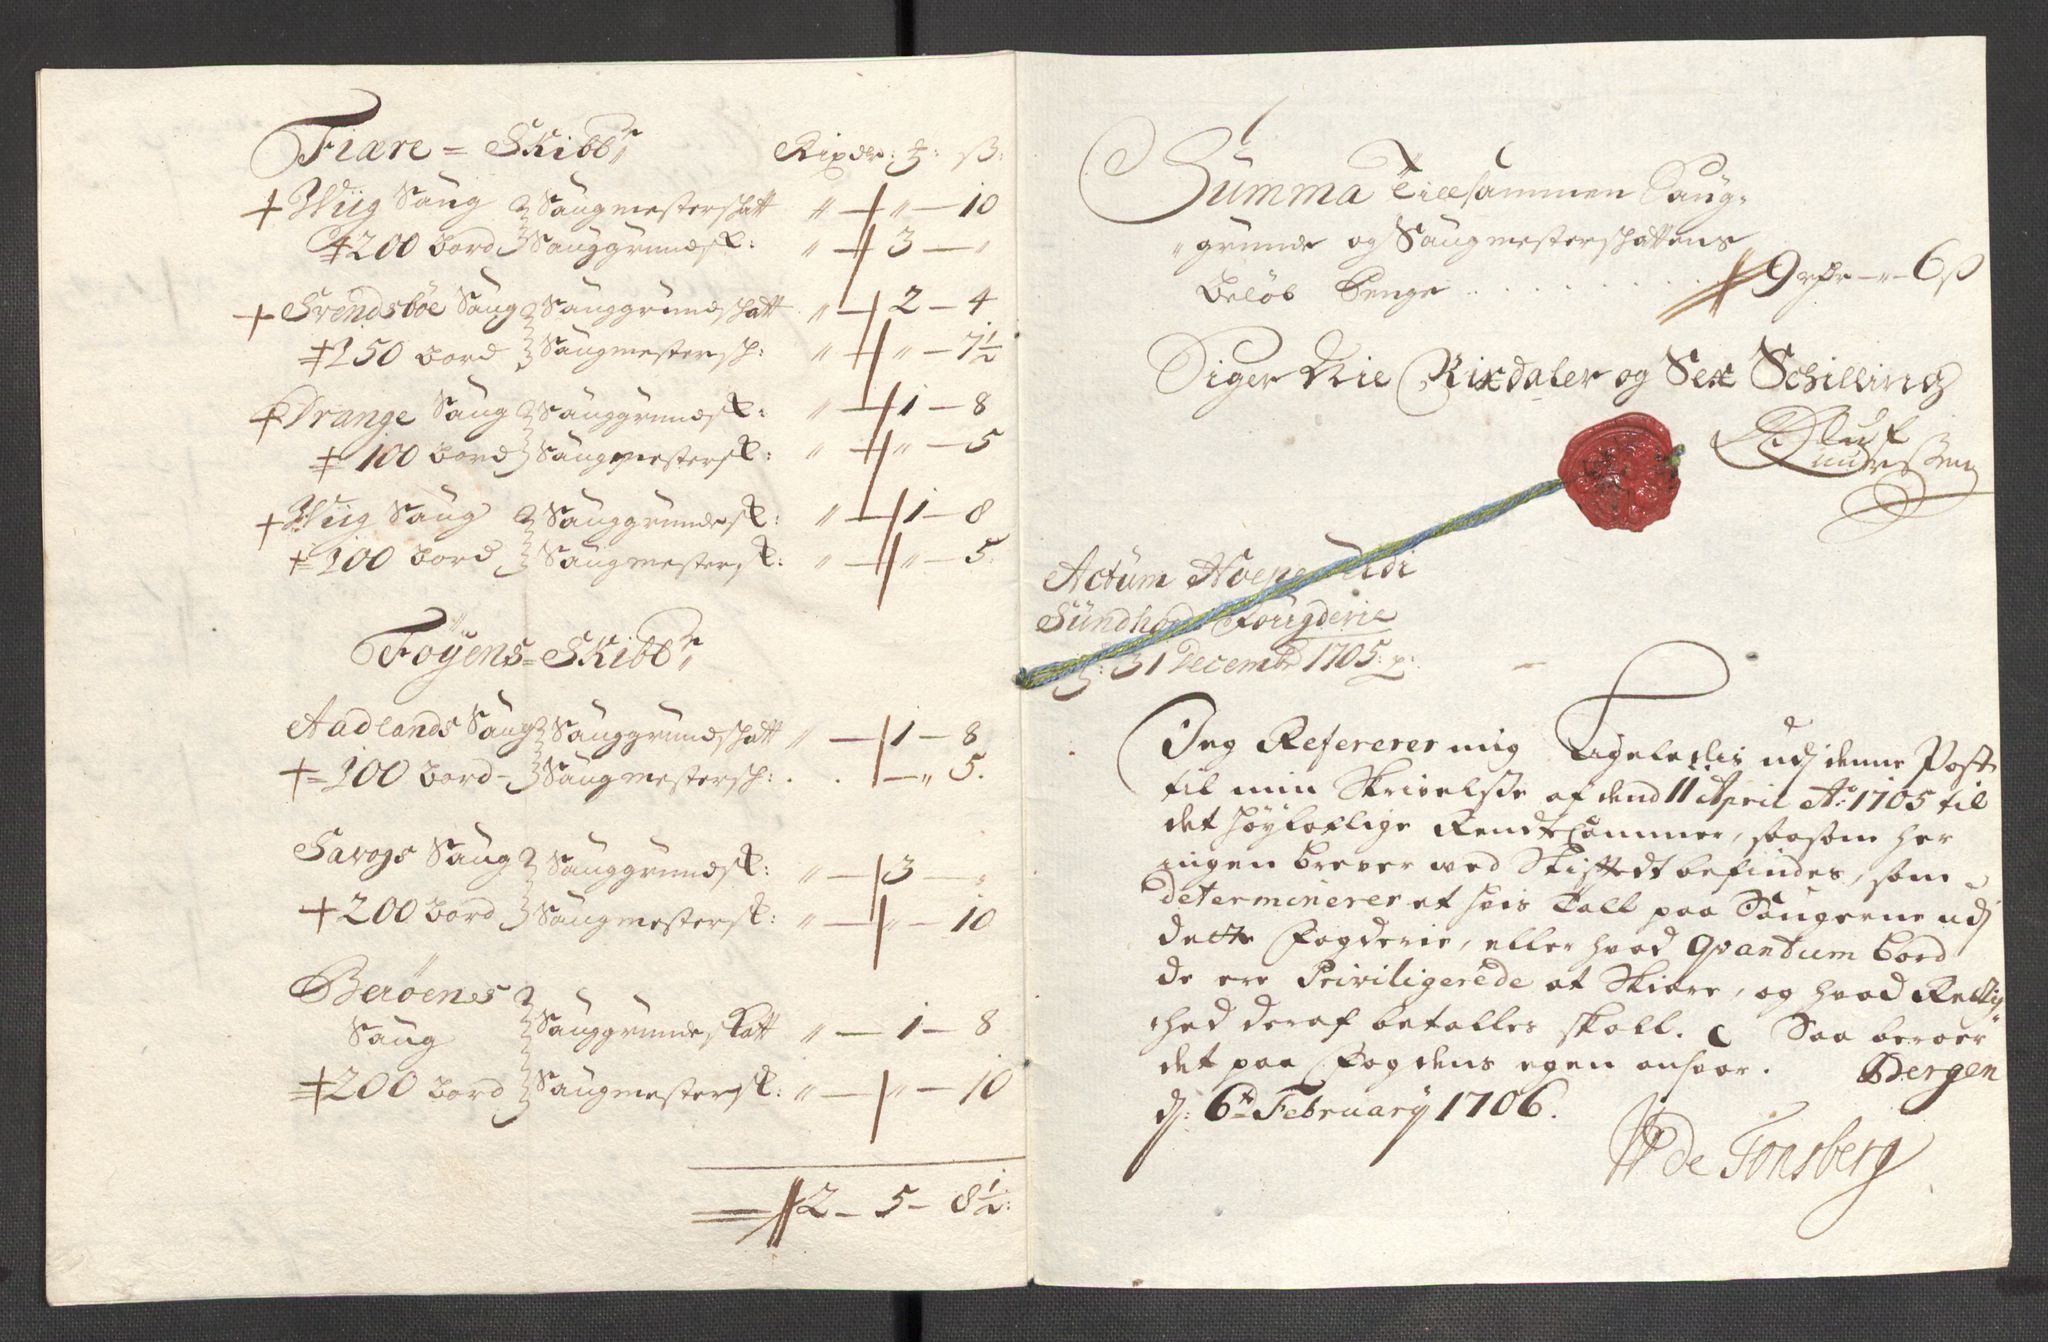 Fiære = Skibbr Rixdr: ʒ: ß:
Wiig Saug Saugmesterschatt " — " — 10
200 bord Sauggrundsk: " — 3 — "
Svendsböe Saug Sauggrundschatt " — 2 — 4
150 bord Saugmestersch: " — " — 7½
Drange Saug Sauggrundsk: " — 1 — 8
100 bord Saugmestersk: " — " — 5
Wiig Saug Sauggrundesk: " — 1 — 8
100 bord Saugmestersk: " — " — 5.
Föyens = Skibbr
Aadlands Saug Sauggrundschatt " — 1 — 8
100 bord Saugmestersch: . . — " 5.
Saug Sauggrundsk: " — 3 — "
200 bord Saugmestersk: " — " — 10
Beröenes
Saug Sauggrundeskatt " — 1 — 8
200 bord Saugmestersk: " — " — 10
2 — 5 — 8½:
Summa Tillsammen Saug-
grunde og Saugmesterschattens
beløb Penge . . . . . . . . 9 rdr — " — 6 ß
Siger Nie Rixdaler og Sex Schilling
Oluf
Knudssen
Actum Hoepe udi
Sundhords Fougderie
d: 31 Decembr 1705: p:
Jeg Refererer mig Ligeledis udj denne Post
til min Skrivelsse af dend 11 April Ao: 1705 til
det høyloflige Rendte Cammer, saasom her
ingen brever ved Stiftedt befindes, som
determinerer et vis tall paa Saugerne udj
dette Fogderie, eller hvad qvantum bord
de ere Priviligerede at Skiære, og hvad Rettig
hed deraf betalles skall. Saa beroer
det paa Fogdens egen ansvar. Bergen
dj: 6te February 1706.
WP de Tonsberg